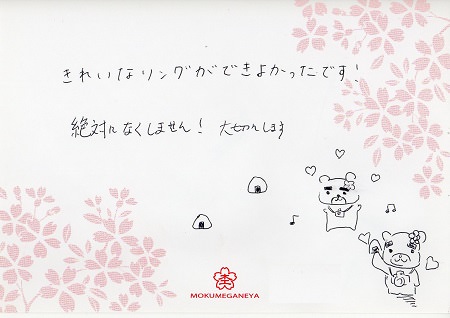 きれいなリングができよかったです!
絶対になくしません! 大切にします
MOKUMEGANEYA